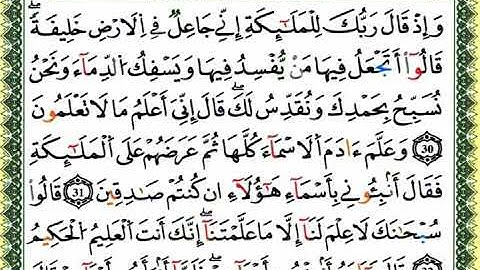 وَإِذْ قَالَ رَبُّكَ لِلْمَلَٰٓئِكَةِ إِنِّے جَاعِلٌ فِے اِلَارْضِ خَلِيفَةٗۖ
قَالُوٓاْ أَتَجْعَلُ فِيهَا مَنْ يُّفْسِدُ فِيهَا وَيَسْفِكُ اُلدِّمَآءَ وَنَحْنُ
نُسَبِّحُ بِحَمْدِكَ وَنُقَدِّسُ لَكَۖ قَالَ إِنِّيَ أَعْلَمُ مَا لَا تَعْلَمُونَ
30 وَعَلَّمَ ءَادَمَ اَلَاسْمَآءَ كُلَّهَا ثُمَّ عَرَضَهُمْ عَلَى اَلْمَلَٰٓئِكَةِ
فَقَالَ أَنۢبِـُٔونِے بِأَسْمَآءِ هَٰٓؤُلَآءِ ان كُنتُمْ صَٰدِقِينَۖ 31 قَالُواْ
سُبْحَٰنَكَ لَا عِلْمَ لَنَآ إِلَّا مَا عَلَّمْتَنَآۖ إِنَّكَ أَنتَ اَلْعَلِيمُ اُلْحَكِيمُ